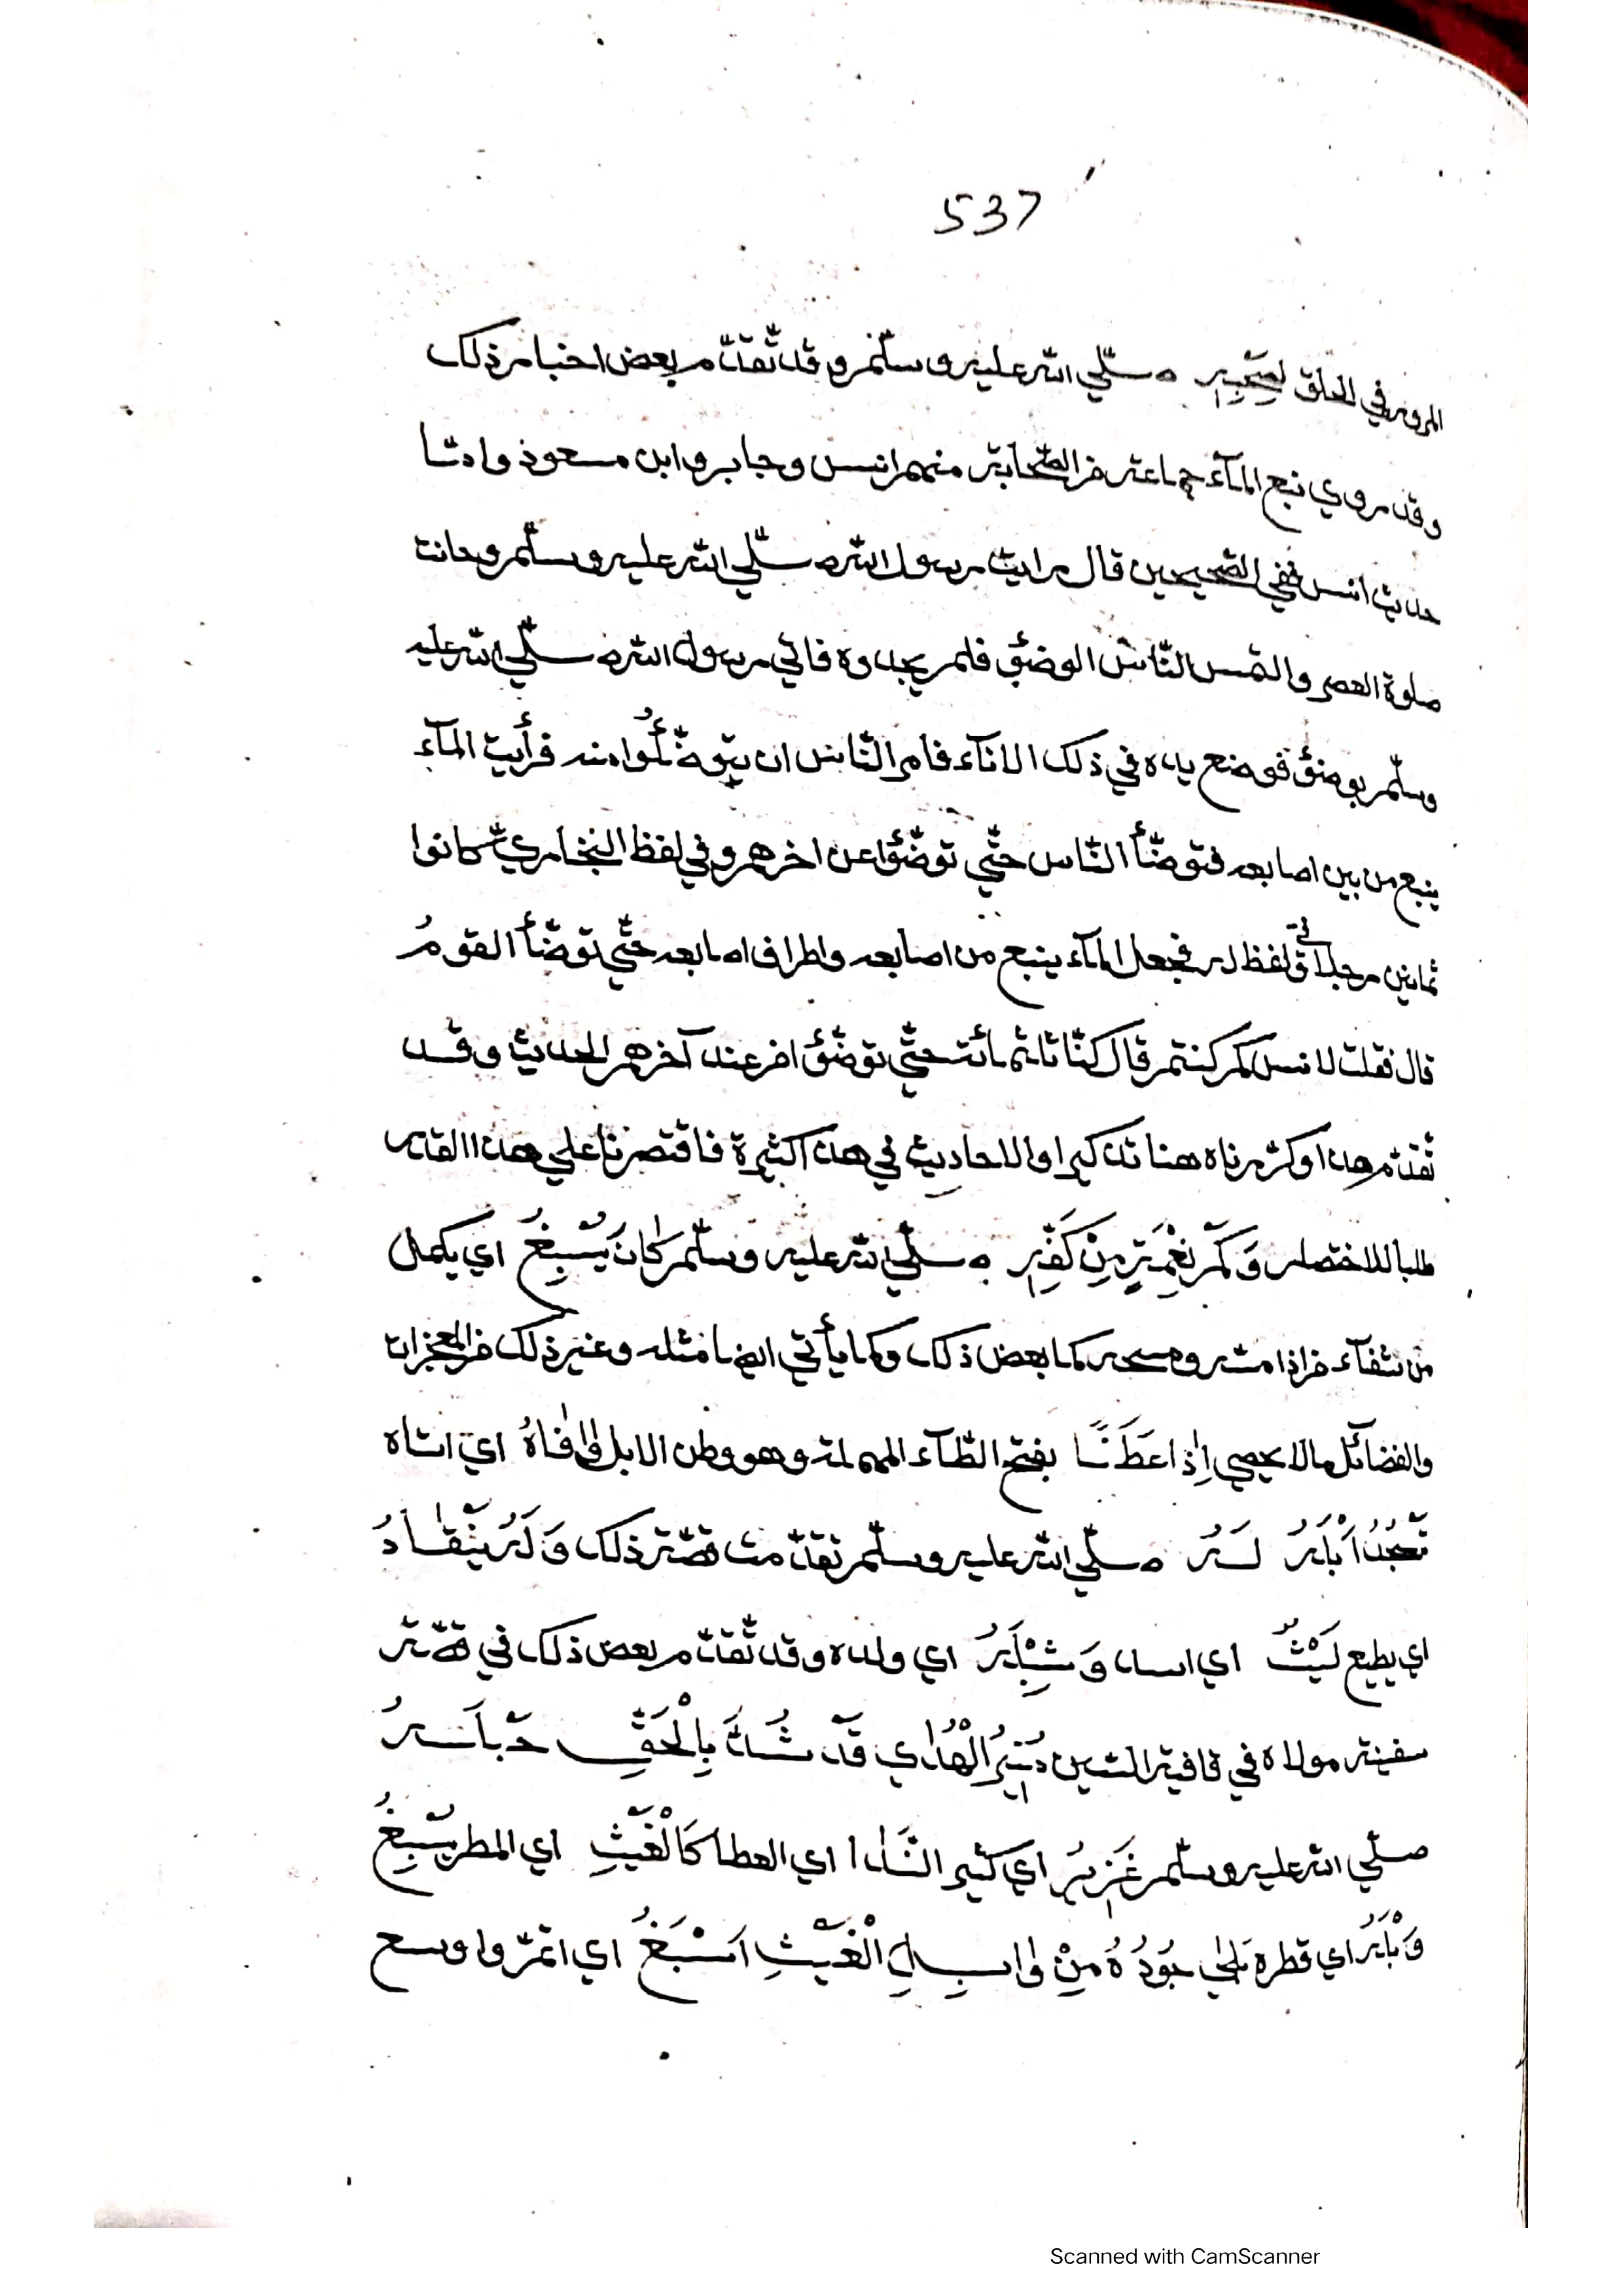 537
المرور في الحلق لصحبه صلّي الله عليه وسلّم وقد تّقدّم بعض اخبار ذلك
وقد روي نبع المآء جماعة من الصّحابة منهم انس وجابر وابن مسعود وامّا
حديث انس ففي الصّحيحين قال رايت رسول الله صلّي الله عليه وسلّم وحانت
صلوة العصر والتمس النّاس الوضوٓء فلم يجدوه فاتي رسول الله صلّي الله عليه
وسلّم بوضوٓء فوضع يده في ذلك الانآء فامر النّاس ان يتوضّئُوا منه فرأيت المآء
ينبع من بين اصابعه فتوضّأ النّاس حتّي توضّؤا عن اخرهم وفي لفظ البخاريّ كانوا
ثمانين رجلا وفي لفظ له فجعل المآء ينبع من اصابعه واطراف اصابعه حتّي توضّأ القومُ
قال فقلت لانس كم كنتم قال كنّا ثلثمائة حتّي توضّؤ عند آخرهم الحديث وقد
تّقدّم هذا وكرّرناه هنا تذكيرا والاحاديث في هذا كثيرة فاقتصرنا علي هذا القدر
طلبا للاختصار وَكَمْ نِعْمَةٍ مِنْ كَفِّهِ صلّي الله عليه وسلّم كٰانَ يُسْبِغُ اي يكمل
من شفآء من اذا مسّه ومسحه كما بعض ذلك وكما يأتي ايضا مثله وغير ذلك من المعجزات
والفضائل مالا يحصي اِذا عَطَنًا بفتح الطّآء المهملة وهو وطن الابل وٰافٰاهُ اي اتاه
تَسْجُدُ اِبْلُهُ لَهُ صلّي الله عليه وسلّم تقدّمت قصّة ذلك وَلَهُ يَنْقٰادُ
اي يطيع لَيْثٌ اي اسد وَشِبْلُهُ اي ولده وقد تّقدّم بعض ذلك في قصّة
سفينة مولاه في قافية السّين مُنِيرُ الْهُدٰي قَدْ شُدَّ بِالْحَقِّ حَبْلُهُ
صلّي الله عليه وسلّم غَزِيرُ اي كثير النَّدٰا اي العطا كَالْغَيْثِ اي المطر يُسْبِغُ
وَبْلُهُ اي قطره بَلٰي جُودُهُ مِنْ وٰابِلِ الْغَيْثِ اَسْبَغُ اي اتمّ واوسع
Scanned with CamScanner